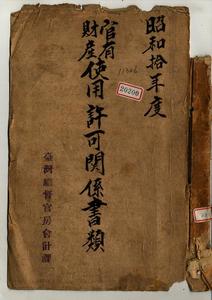 昭和拾年度
官有
財産
使用許可関係書類
11306
20200
臺灣總督官房會計課